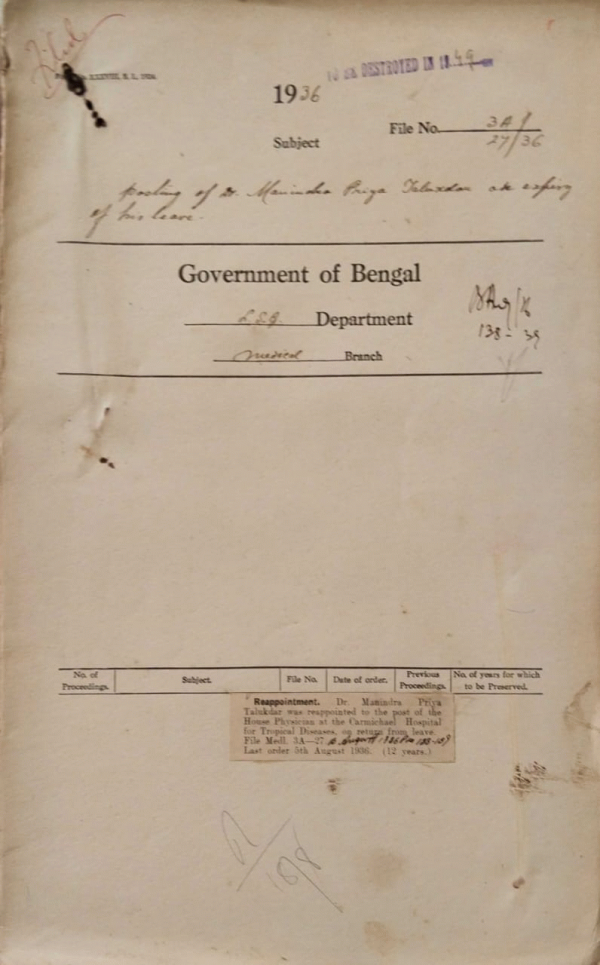 Filed
TO BE DESTROYED IN 1949
1936
File No. 3A/
27/36
Subject
Posting of Dr. Manindra Priya Talukdar on expiry
of his leave.
Government of Bengal
L.S.G. Department
Medical Branch
138-39
No. of Proceedings. Subject. File No. Date of order. Previous Proceedings. No. of years for which to be Preserved.
Reappointment. Dr. Manindra Priya
Talukdar was reappointed to the post of the
House Physician at the Carmichael Hospital
for Tropical Diseases, on return from leave.
File Medl. 3A—27 B August 1936 138-39
Last order 5th August 1936. (12 years.)